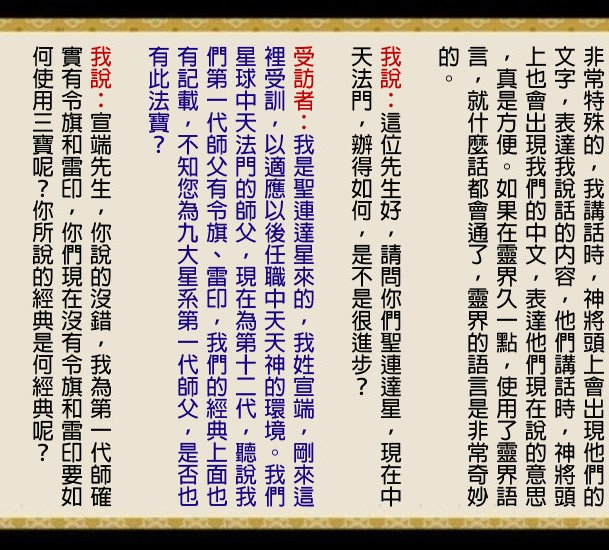 非常特殊的，我講話時，神將頭上會出現他們的
文字，表達我說話的內容，他們講話時，神將頭
上也會出現我們的中文，表達他們現在說的意思
，真是方便。如果在靈界久一點，使用了靈界語
言，就什麼話都會通了，靈界的語言是非常奇妙
的。
我說：這位先生好，請問你們聖連達星，現在中
天法門，辦得如何，是不是很進步？
受訪者：我是聖連達星來的，我姓宣端，剛來這
裡受訓，以適應以後任職中天天神的環境。我們
星球中天法門的師父，現在為第十二代，聽說我
們第一代師父有令旗、雷印，我們的經典上面也
有記載，不知您為九大星系第一代師父，是否也
有此法寶？
我說：宣端先生，你說的沒錯，我為第一代師確
實有令旗和雷印，你們現在沒有令旗和雷印要如
何使用三寶呢？你所說的經典是何經典呢？